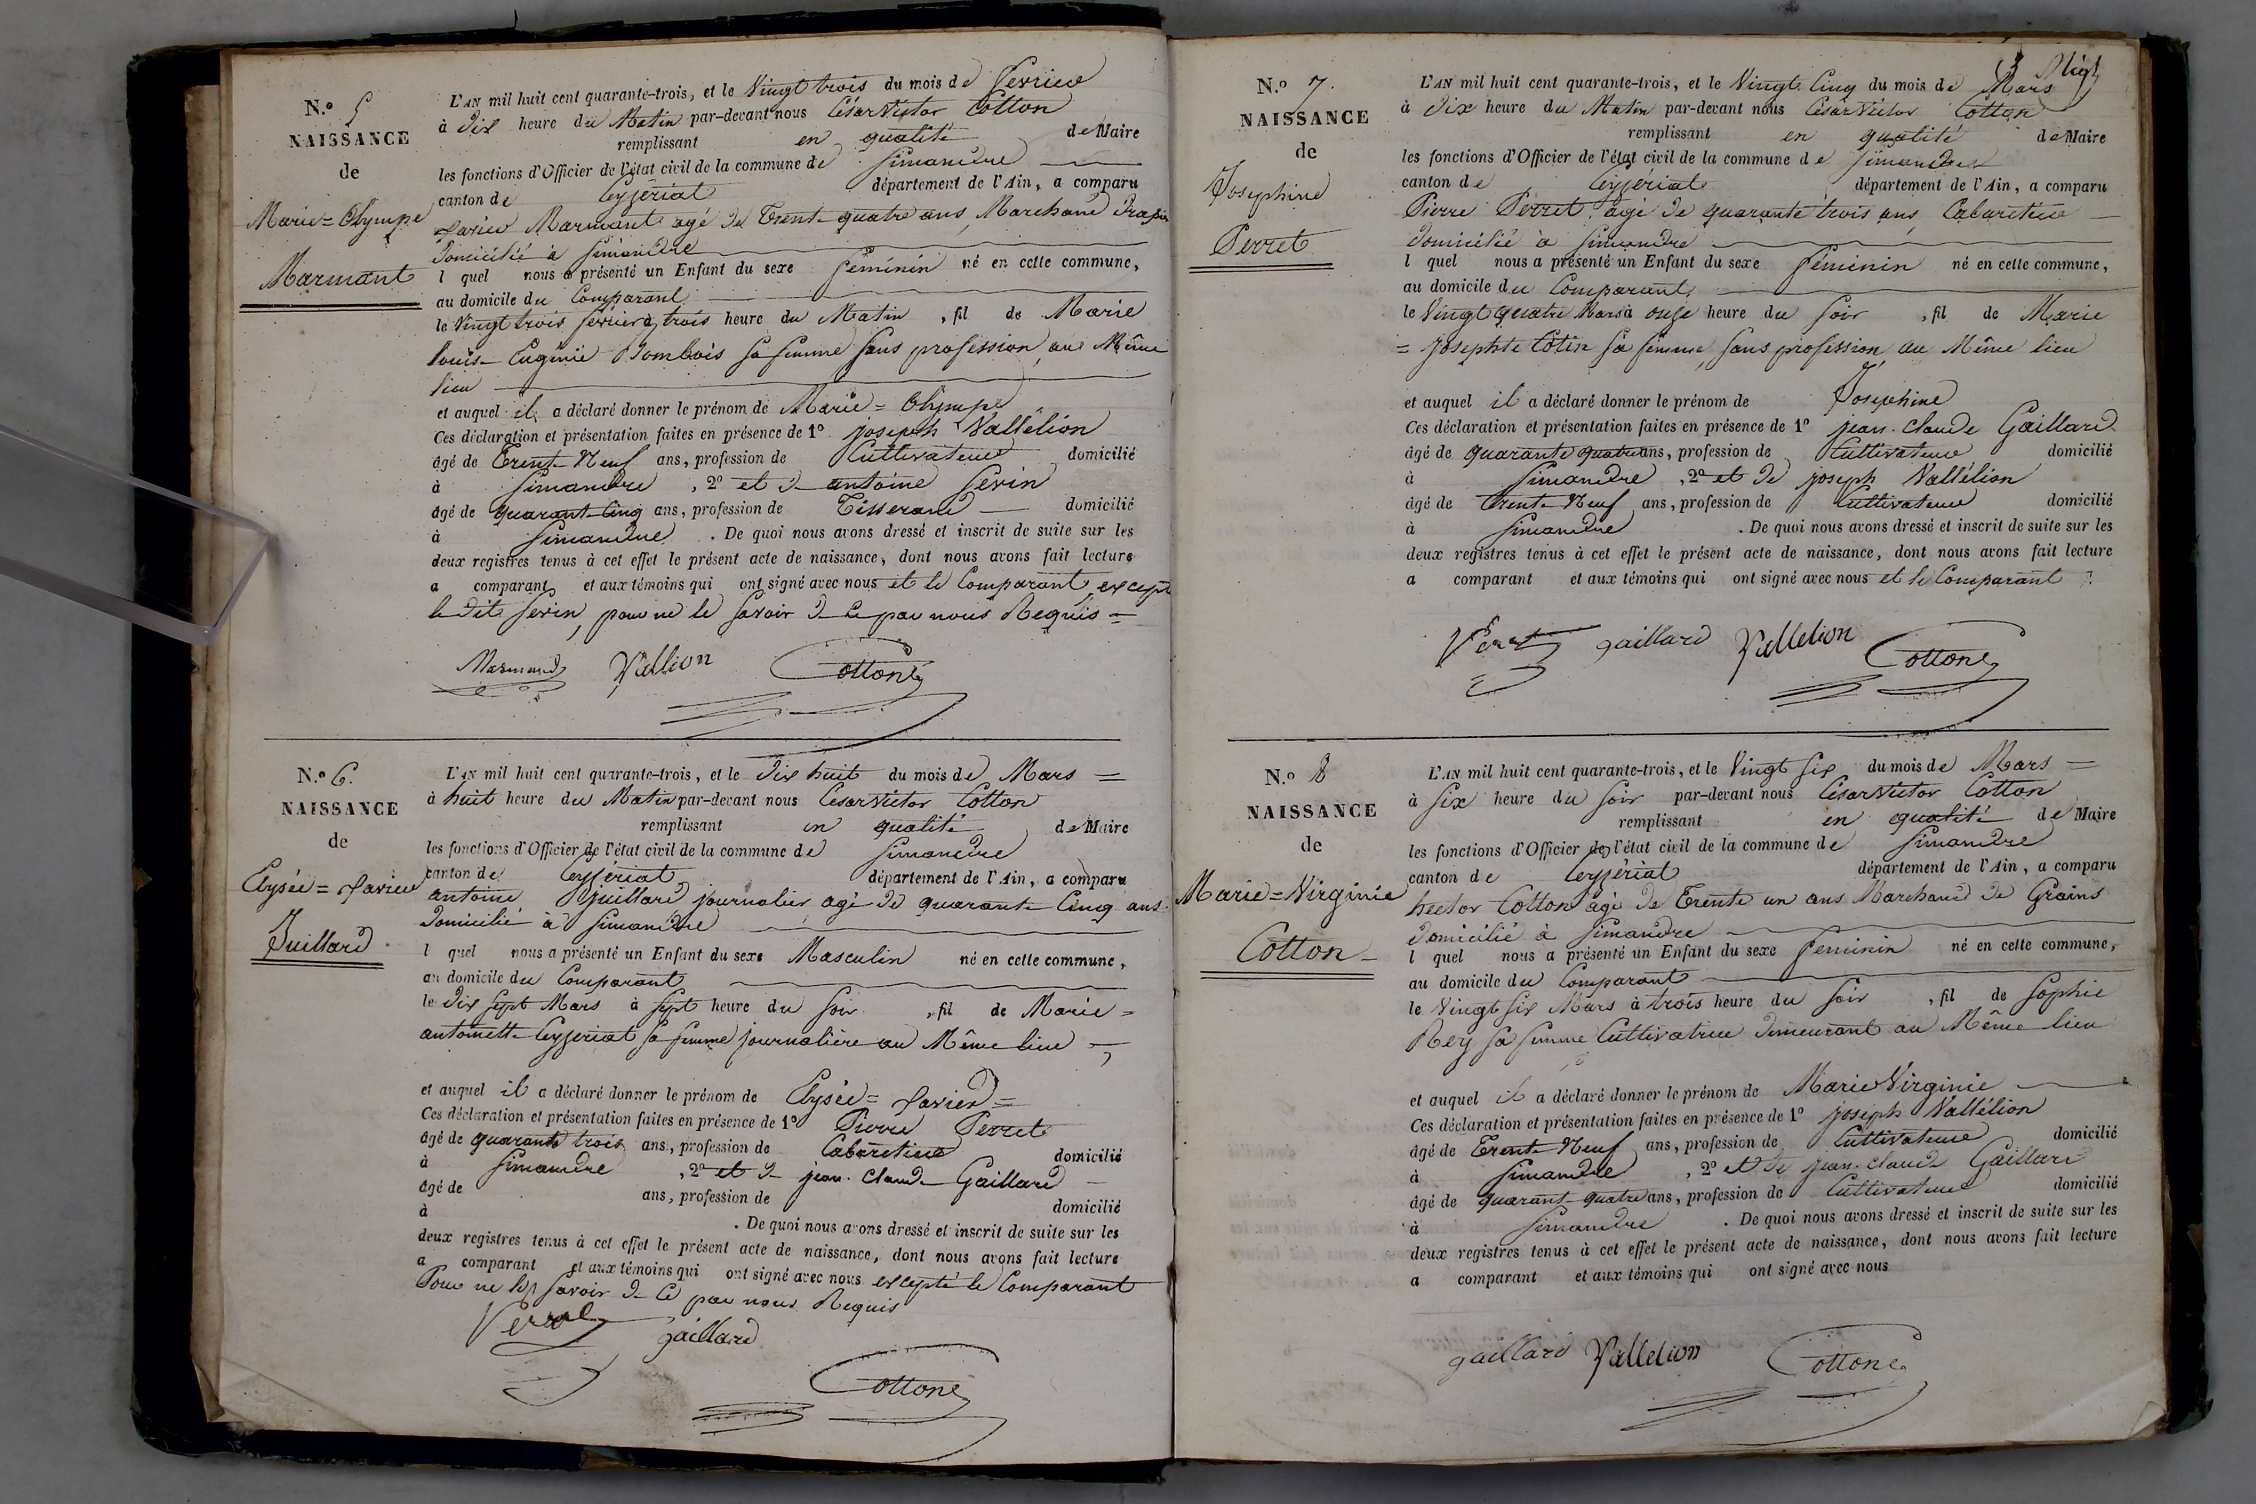 N.o 5
NAISSANCE
de
Marie = Olympe
Marmant
L'AN mil huit cent quarante-trois, et le Vingt trois du mois de Fevrier
à Dix heure du Matin par-devant nous César Victor Cotton
remplissant en qualité de Maire
les fonctions d'Officier de l'état civil de la commune de Simandre
canton de Ceyzériat département de l'Ain, a comparu
Xavier Marmant agé de Trente quatre ans, Marchand Drapier
Domicilié à Simandre
l quel nous a présenté un Enfant du sexe féminin né en cette commune,
au domicile du Comparant
le Vingt trois février à trois heure du Matin , fil de Marie
louise Eugénie Dombois sa femme sans profession, au Même
lieu
et auquel il a déclaré donner le prénom de Marie = Olympe
Ces déclaration et présentation faites en présence de 1o Joseph Vallélion
âgé de Trente Neuf ans, profession de Cultivateur domicilié
à Simandre , 2o et de antoine Sevin
âgé de quarante Cinq ans, profession de Tisserand domicilié
à Simandre . De quoi nous avons dressé et inscrit de suite sur les
deux registres tenus à cet effet le présent acte de naissance, dont nous avons fait lecture
a comparant et aux témoins qui ont signé avec nous et le Comparant, excepté
le dit Sevin, pour ne le savoir de ce par nous Requis =
Marmand Vallion Cotton
N.o 6.
NAISSANCE
de
Elysée = Xavier
Juillard
L'AN mil huit cent quarante-trois, et le Dix huit du mois de Mars =
à huit heure du Matin par-devant nous César Victor Cotton
remplissant en qualité de Maire
les fonctions d'Officier de l'état civil de la commune de Simandre
canton de Ceyzériat département de l'Ain, a comparu
antoine Juillard journalier agé de quarante Cinq ans
Domicilié à Simandre
l quel nous a présenté un Enfant du sexe Masculin né en cette commune,
au domicile du Comparant
le Dix sept Mars à sept heure du soir , fil de Marie =
antoinette Ceyzeriat sa femme journalière au Même lieu
et auquel il a déclaré donner le prénom de Elysée = Xavier =
Ces déclaration et présentation faites en présence de 1o Pierre Perret
âgé de quarante trois ans, profession de Cabaretier domicilié
à Simandre , 2o et de jean-Claude Gaillard
âgé de ans, profession de domicilié
à . De quoi nous avons dressé et inscrit de suite sur les
deux registres tenus à cet effet le présent acte de naissance, dont nous avons fait lecture
a comparant et aux témoins qui ont signé avec nous excepté le Comparant
Pour ne le savoir de ce par nous Requis
gaillard
Cotton
N.o 7.
NAISSANCE
de
Josephine
Perret
L'AN mil huit cent quarante-trois, et le Vingt Cinq du mois de Mars
à Dix heure du Matin par-devant nous César Victor Cotton
remplissant en qualité de Maire
les fonctions d'Officier de l'état civil de la commune de Simandre
canton de Ceyzériat département de l'Ain, a comparu
Pierre Perret, agé de quarante trois ans, Cabaretier
Domicilié à Simandre
l quel nous a présenté un Enfant du sexe féminin né en cette commune,
au domicile du Comparant
le Vingt quatre Mars à onze heure du soir , fil de Marie
= Josephte Cotin sa femme, sans profession au Même lieu
et auquel il a déclaré donner le prénom de Josephine
Ces déclaration et présentation faites en présence de 1o jean-Claude Gaillard
âgé de quarante quatre ans, profession de Cultivateur domicilié
à Simandre , 2o et de joseph Vallélion
âgé de Trente Neuf ans, profession de Cultivateur domicilié
à Simandre . De quoi nous avons dressé et inscrit de suite sur les
deux registres tenus à cet effet le présent acte de naissance, dont nous avons fait lecture
a comparant et aux témoins qui ont signé avec nous et le Comparant
gaillard Vallelion Cotton
N.o 8
NAISSANCE
de
Marie = Virginie
Cotton
L'AN mil huit cent quarante-trois, et le Vingt Six du mois de Mars =
à Six heure du soir par-devant nous César Victor Cotton
remplissant en qualité de Maire
les fonctions d'Officier de l'état civil de la commune de Simandre
canton de Ceyzériat département de l'Ain, a comparu
hector Cotton agé de Trente un ans Marchand de Grains
Domicilié à Simandre
l quel nous a présenté un Enfant du sexe féminin né en cette commune,
au domicile du Comparant
le Vingt Six Mars à trois heure du soir , fil de Sophie
Rey sa femme Cultivatrice Demeurant au Même lieu
et auquel il a déclaré donner le prénom de Marie Virginie
Ces déclaration et présentation faites en présence de 1o joseph Vallélion
âgé de Trente Neuf ans, profession de Cultivateur domicilié
à Simandre , 2o et de jean-Claude Gaillard
âgé de quarante quatre ans, profession de Cultivateur domicilié
à Simandre . De quoi nous avons dressé et inscrit de suite sur les
deux registres tenus à cet effet le présent acte de naissance, dont nous avons fait lecture
a comparant et aux témoins qui ont signé avec nous
gaillard Vallelion Cotton